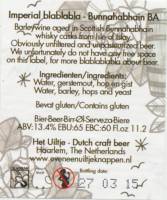 Imperial blablabla - Bunnahabhain BA
Barleywine aged in Scottish Bunnahabhain
whisky casks from Isle of Islay.
Obviously unfiltered and unpasteurized beer.
We unfortunately do not have any free space
on this label, for more blablablabla about beer.
Ingredienten/ingredients:
Water, gerstemout, hop en gist
Water, barley, hops and yeast
Bevat gluten/Contains gluten
Bier-Beer-Bin-Øl-Serveza-Biere
ABV:13.4% EBU:65 EBC:60 Fl.oz 11.2
Het Uiltje - Dutch craft beer
Haarlem, The Netherlands
www.eveneenuiltjeknappen.nl
Bottling date:
27 03 15